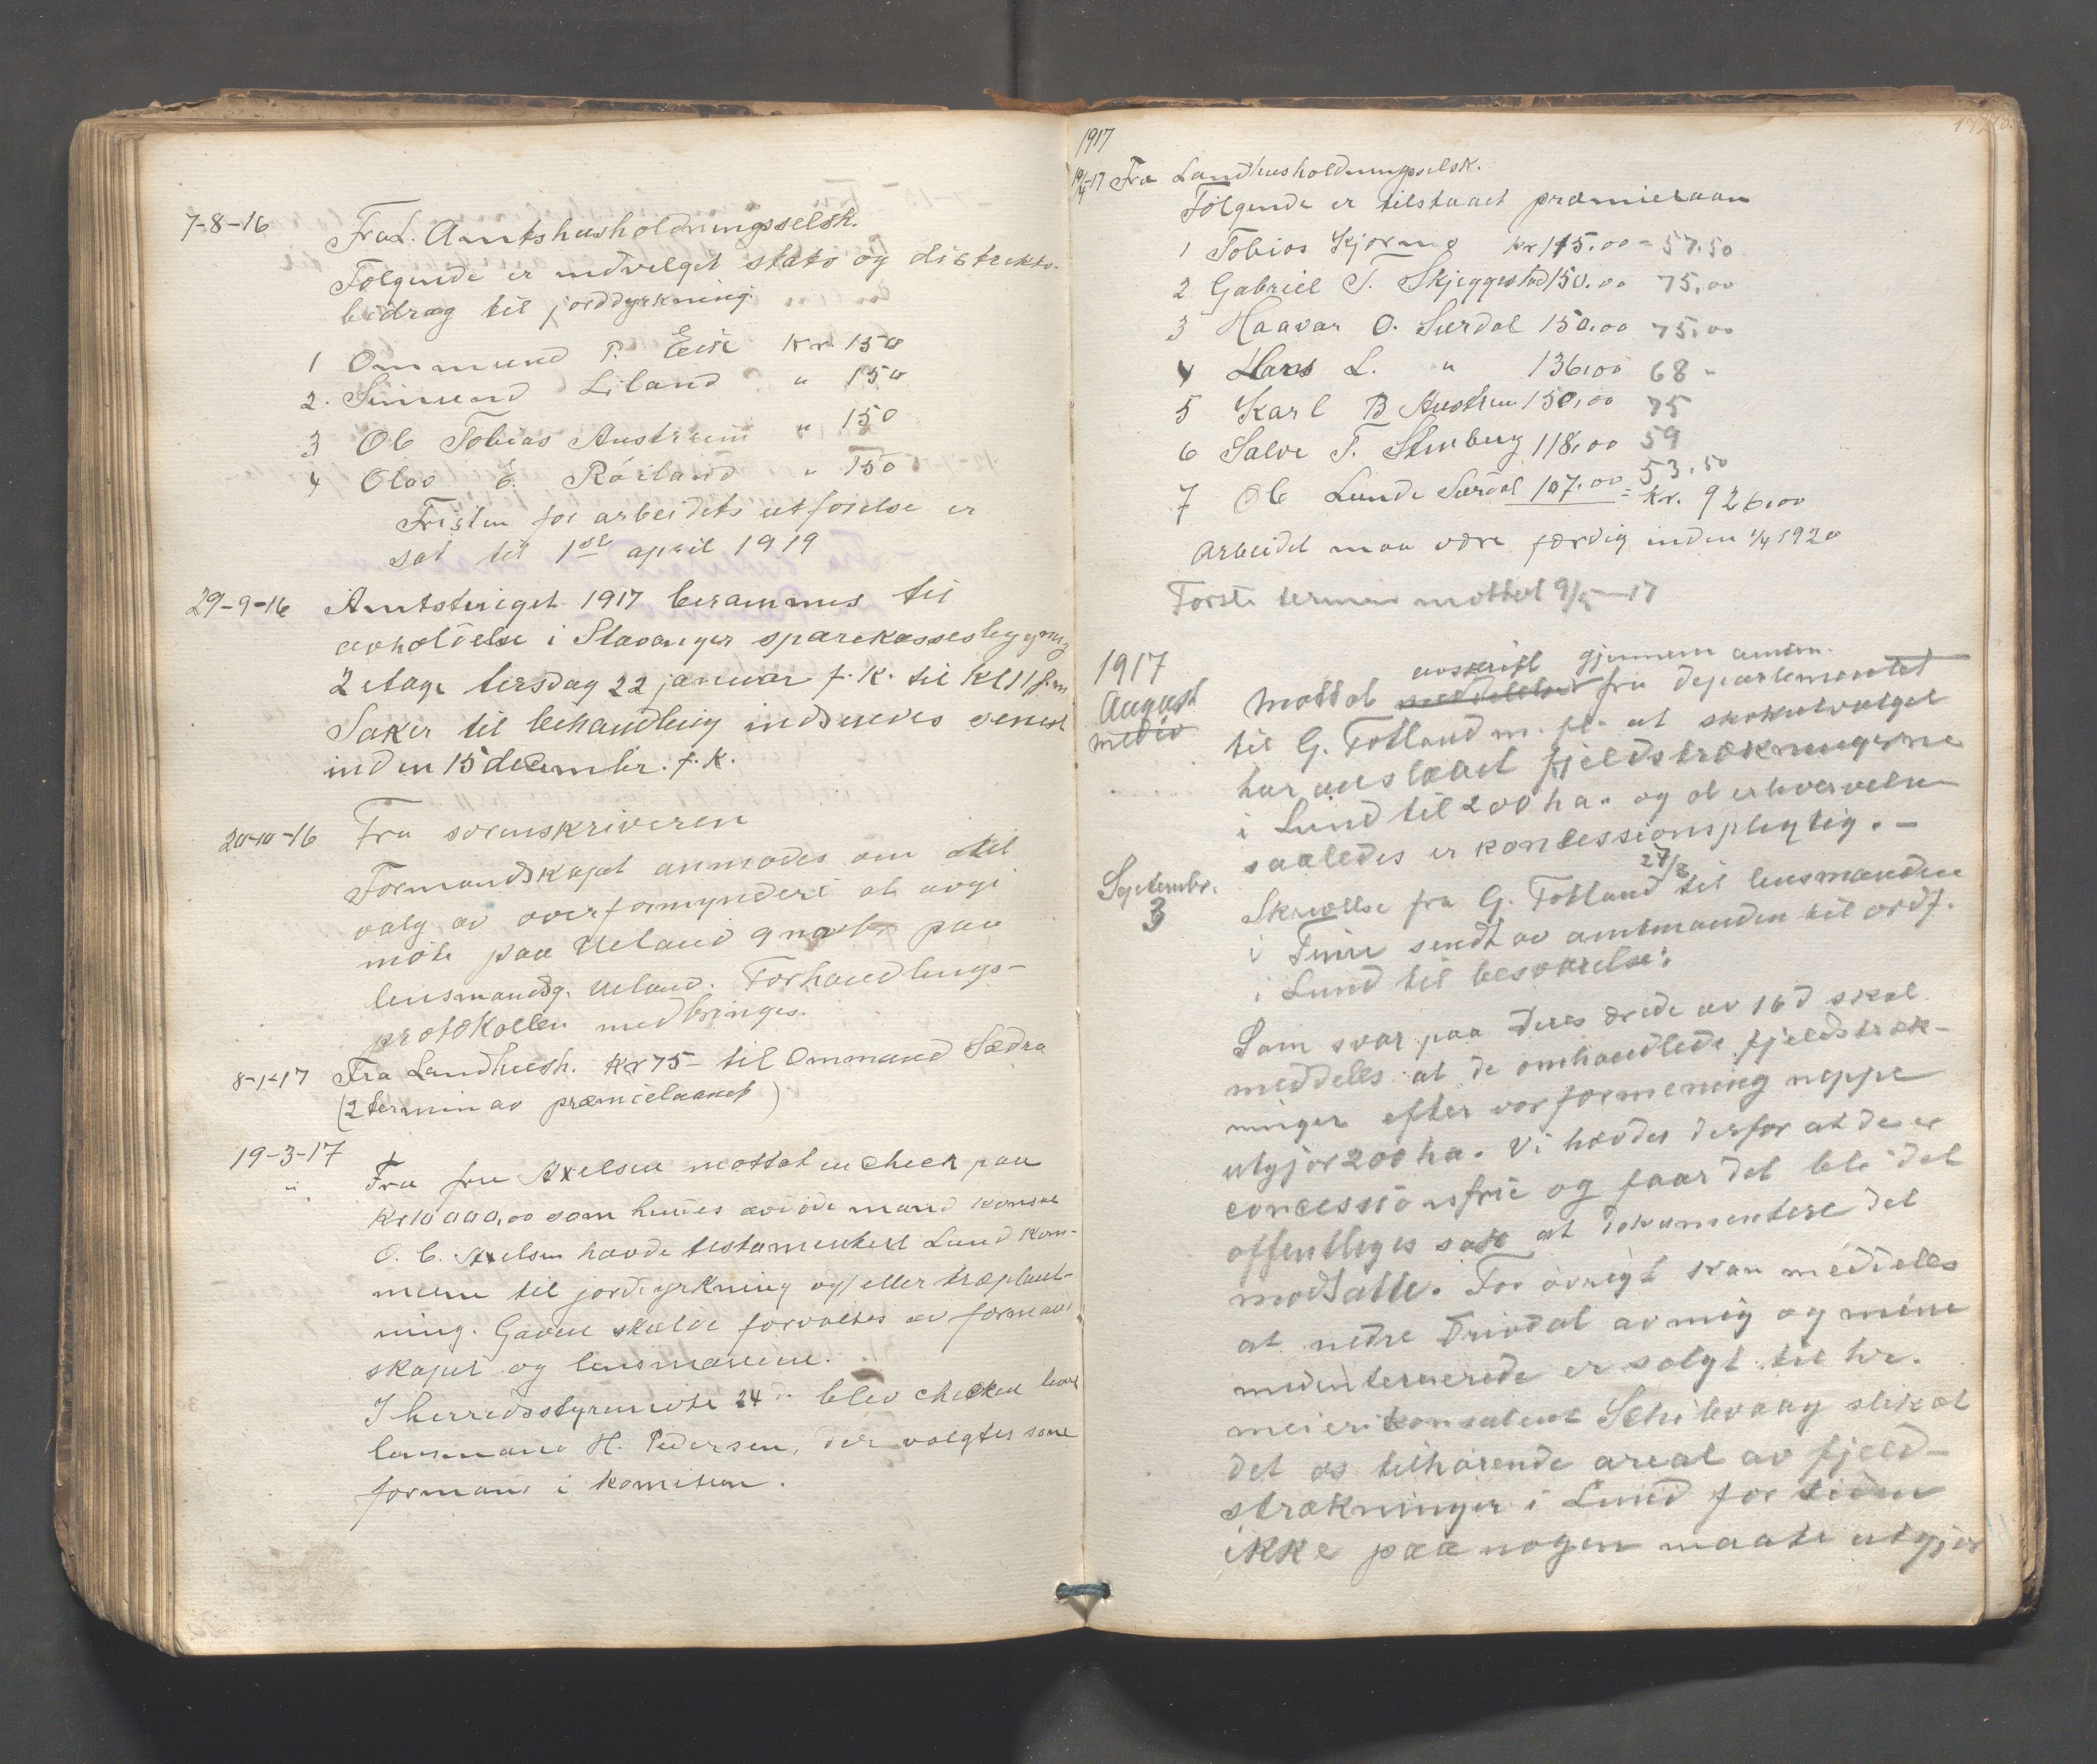 7-8-16 Fra L. Amtshusholdningsselsk.
Følgende er indvilget stats og distrikts-
bidrag til jorddyrkning.
1 Ommund P. Eik Kr. 150
2. Simund Liland " 150
3 Ole Tobias Austrum " 150
4 Olav E. Røiland " 150
Fristen for arbeidets utførelse er
sat til 1st april 1919
29-9-16 Amtstinget 1917 berammes til
avholdelse i Stavanger sparekassesbygning
2 etage tirsdag 22 januar f. k. til Kl 11 f.m
Saker til behandling indsendes senest
inden 15 decembr. f. k.
20-10-16 Fra sorenskriveren
Formandskapet anmodes om til
valg av overformynderi at avgi
møte paa Ueland 9 paa
lensmandsg. Ueland. Forhandlings-
protokollen medbringes.
8-1-17 Fra Landhush. Kr 75- til Ommund Sædra
(2 termin av præmielaanet)
19-3-17 Fra fru Axelsen mottat en check paa
" Kr 10 000,00 som hendes avdøde mand konsul
O. C. Axelsen havde testamentert Lund kom-
mune til jorddyrkning og/eller træplant-
ning. Gaven skulde forvaltes av formand
skapet og lensmanden.
I herredsstyremøte 24 d. blev checken lever
lensmand H. Pedersen, der valgtes som
formand i komiteen.
1917
19/4-17 Fra Landhusholdningselsk.
Følgende er tilstaaet præmielaan
1 Tobias Kjørmo Kr 115.00 = 57.50
2 Gabriel T. Skjeggestad 150.00 75,00
3 Haavar O. Surdal 150.00 75,00
4 Lars L. " 136,00 68 "
5 Karl B Austrum 150,00 75
6 Salve T. Stenberg 118,00 59
7 Ole Lunde Surdal 107.00 53.50
= Kr. 926,00
Arbeidet maa være færdig inden 1/4 1920
Første termin mottat 9/5-17
1917
August
medio
avskrift gjennem amtm.
Mottat meddelelse fra departementet
til G. Fotland m. fl. at skoneutvalget
har anslaaet fjeldstrækningerne
i Lund til 200 ha. og at erhvervelsen
saaledes er koncessionspligtig. -
Septembr.
3
27/8
Skrivelse fra G. Fotland til lensmanden
i Time sendt av amtmanden til ordf.
i Lund til besvarelse:
Som svar paa Deres ærede av 16 d skal
meddeles at de omhandlede fjeldstræk-
ninger efter vor formening neppe
utgjør 200 ha. Vi hævder derfor at de er
concessionsfrie og faar det bli det
offentliges sak at dokumentere det
modsatte. For øvrigt kan meddeles
at nedre Drivdal av mig og mine
medinteresserede er solgt til hr.
meierikonsulent Schilvaag slik at
det os tilhørende areal av fjeld-
strækninger i Lund for tiden
ikke paa nogen maate utgjør